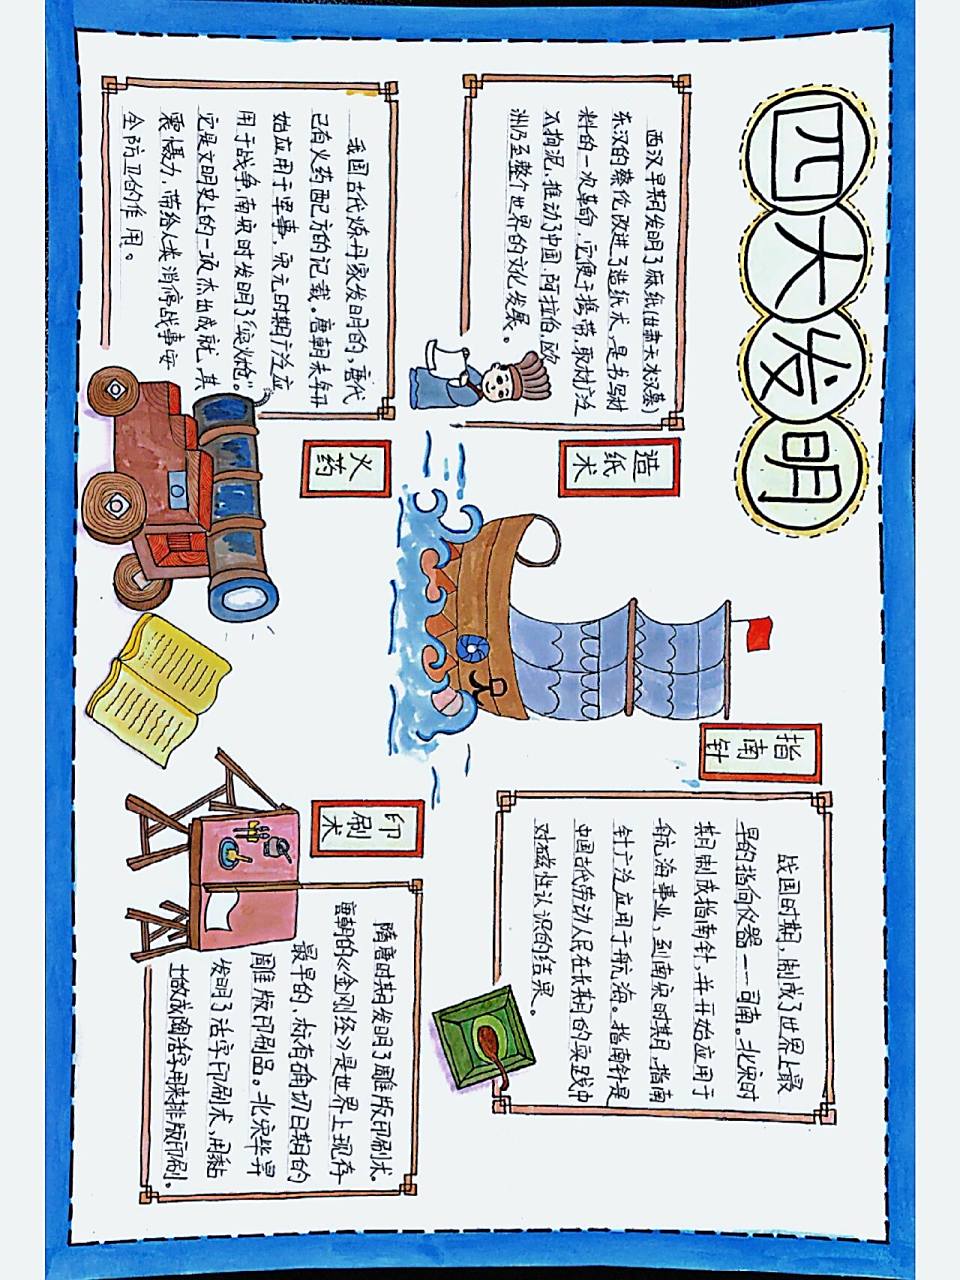 四大发明
造纸术
西汉早期发明了麻纸(甘肃天水汉墓)
东汉的蔡伦改进了造纸术,是书写材
料的一次革命,它便于携带,取材广泛
不拘泥、推动了中国、阿拉伯、欧
洲乃至整个世界的文化发展。
火药
我国古代炼丹家发明的,唐代
已有火药配方的记载。唐朝末年开
始应用于军事,宋元时期广泛应
用于战争,南宋时发明了“突火枪”。
它是文明史上的一项杰出成就,其
震慑力,带给人类消停战事安
全防卫的作用。
指南针
战国时期,制成了世界上最
早的指向仪器——司南。北宋时
期制成指南针,并开始应用于
航海事业,到南宋时期,指南
针广泛应用于航海。指南针是
中国古代劳动人民在长期的实践中
对磁性认识的结果。
印刷术
隋唐时期发明了雕版印刷术。
唐朝的《金刚经》是世界上现存
最早的,标有确切日期的
雕版印刷品。北宋毕昇
发明了活字印刷术,用黏
土做成陶活字用来排版印刷。